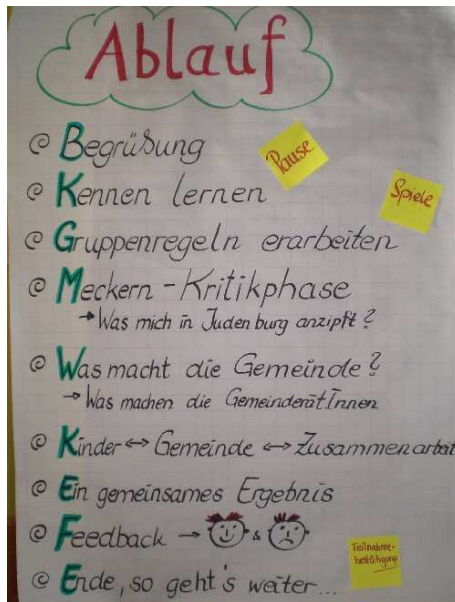 Ablauf
Begrüßung
Pause
Kennen lernen
Spiele
Gruppenregeln erarbeiten
Meckern - Kritikphase
→ Was mich in Judenburg anzipft?
Was macht die Gemeinde?
→ Was machen die GemeinderätInnen
Kinder ↔ Gemeinde ↔ Zusammenarbeit
Ein gemeinsames Ergebnis
Feedback → &
Teilnahme-
bestätigung
Ende, so geht's weiter...